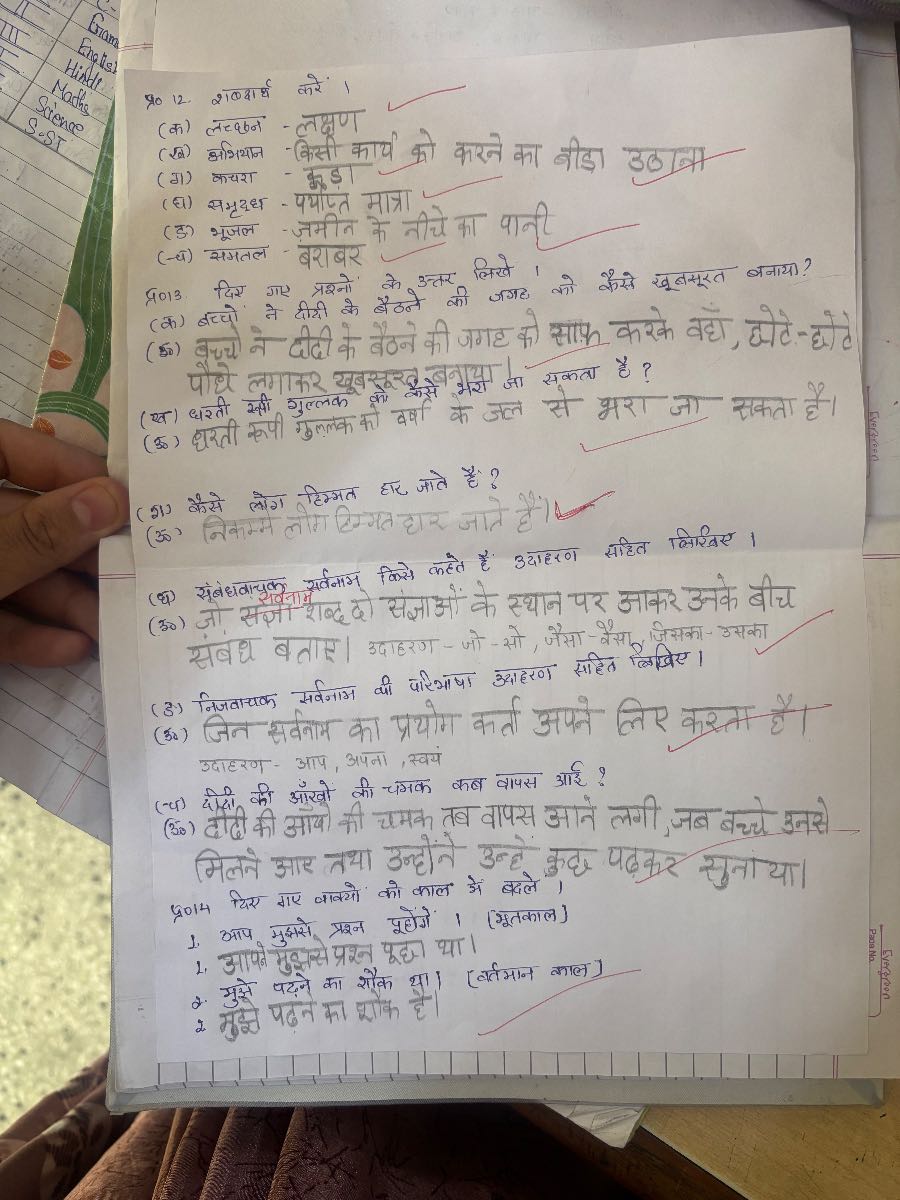 Gram
English
Hindi
Maths
Science
S.ST
प्र० 12. शब्दार्थ करें ।
(क) लच्छन - लक्षण
(ख) अभियान - किसी कार्य को करने का बीड़ा उठाना
(ग) कचरा - कूड़ा
(घ) समृद्ध - पर्याप्त मात्रा
(ङ) भूजल - ज़मीन के नीचे का पानी
(च) समतल - बराबर
प्र०13. दिए गए प्रश्नों के उत्तर लिखे ।
(क) बच्चों ने दीदी के बैठने की जगह को कैसे खूबसूरत बनाया?
(उ०) बच्चों ने दीदी के बैठने की जगह को साफ़ करके वहाँ, छोटे-छोटे
पौधे लगाकर खूबसूरत बनाया।
(ख) धरती रूपी गुल्लक को कैसे भरा जा सकता है ?
(उ०) धरती रूपी गुल्लक को वर्षा के जल से भरा जा सकता है।
(ग) कैसे लोग हिम्मत हार जाते हैं ?
(उ०) निकम्मे लोग हिम्मत हार जाते हैं।
(घ) संबंधवाचक सर्वनाम किसे कहते हैं उदाहरण सहित लिखिए ।
सर्वनाम
(उ०) जो संज्ञा शब्द दो संज्ञाओं के स्थान पर आकर उनके बीच
संबंध बताए। उदाहरण - जो - सो, जैसा - वैसा, जिसका - उसका
(ङ) निजवाचक सर्वनाम की परिभाषा उदाहरण सहित लिखिए ।
(उ०) जिन सर्वनाम का प्रयोग कर्ता अपने लिए करता है।
उदाहरण - आप, अपना, स्वयं
(च) दीदी की आँखों की चमक कब वापस आई ?
(उ०) दीदी की आँखों की चमक तब वापस आने लगी, जब बच्चे उनसे
मिलने आए तथा उन्होंने उन्हें कुछ पढ़कर सुनाया।
प्र०14 दिए गए वाक्यों को काल में बदले ।
1. आप मुझसे प्रश्न पूछोगे । (भूतकाल)
1. आपने मुझसे प्रश्न पूछा था।
2. मुझे पढ़ने का शौक था। (वर्तमान काल)
2 मुझे पढ़ने का शौक है।
Evergreen
Evergreen
Page No.